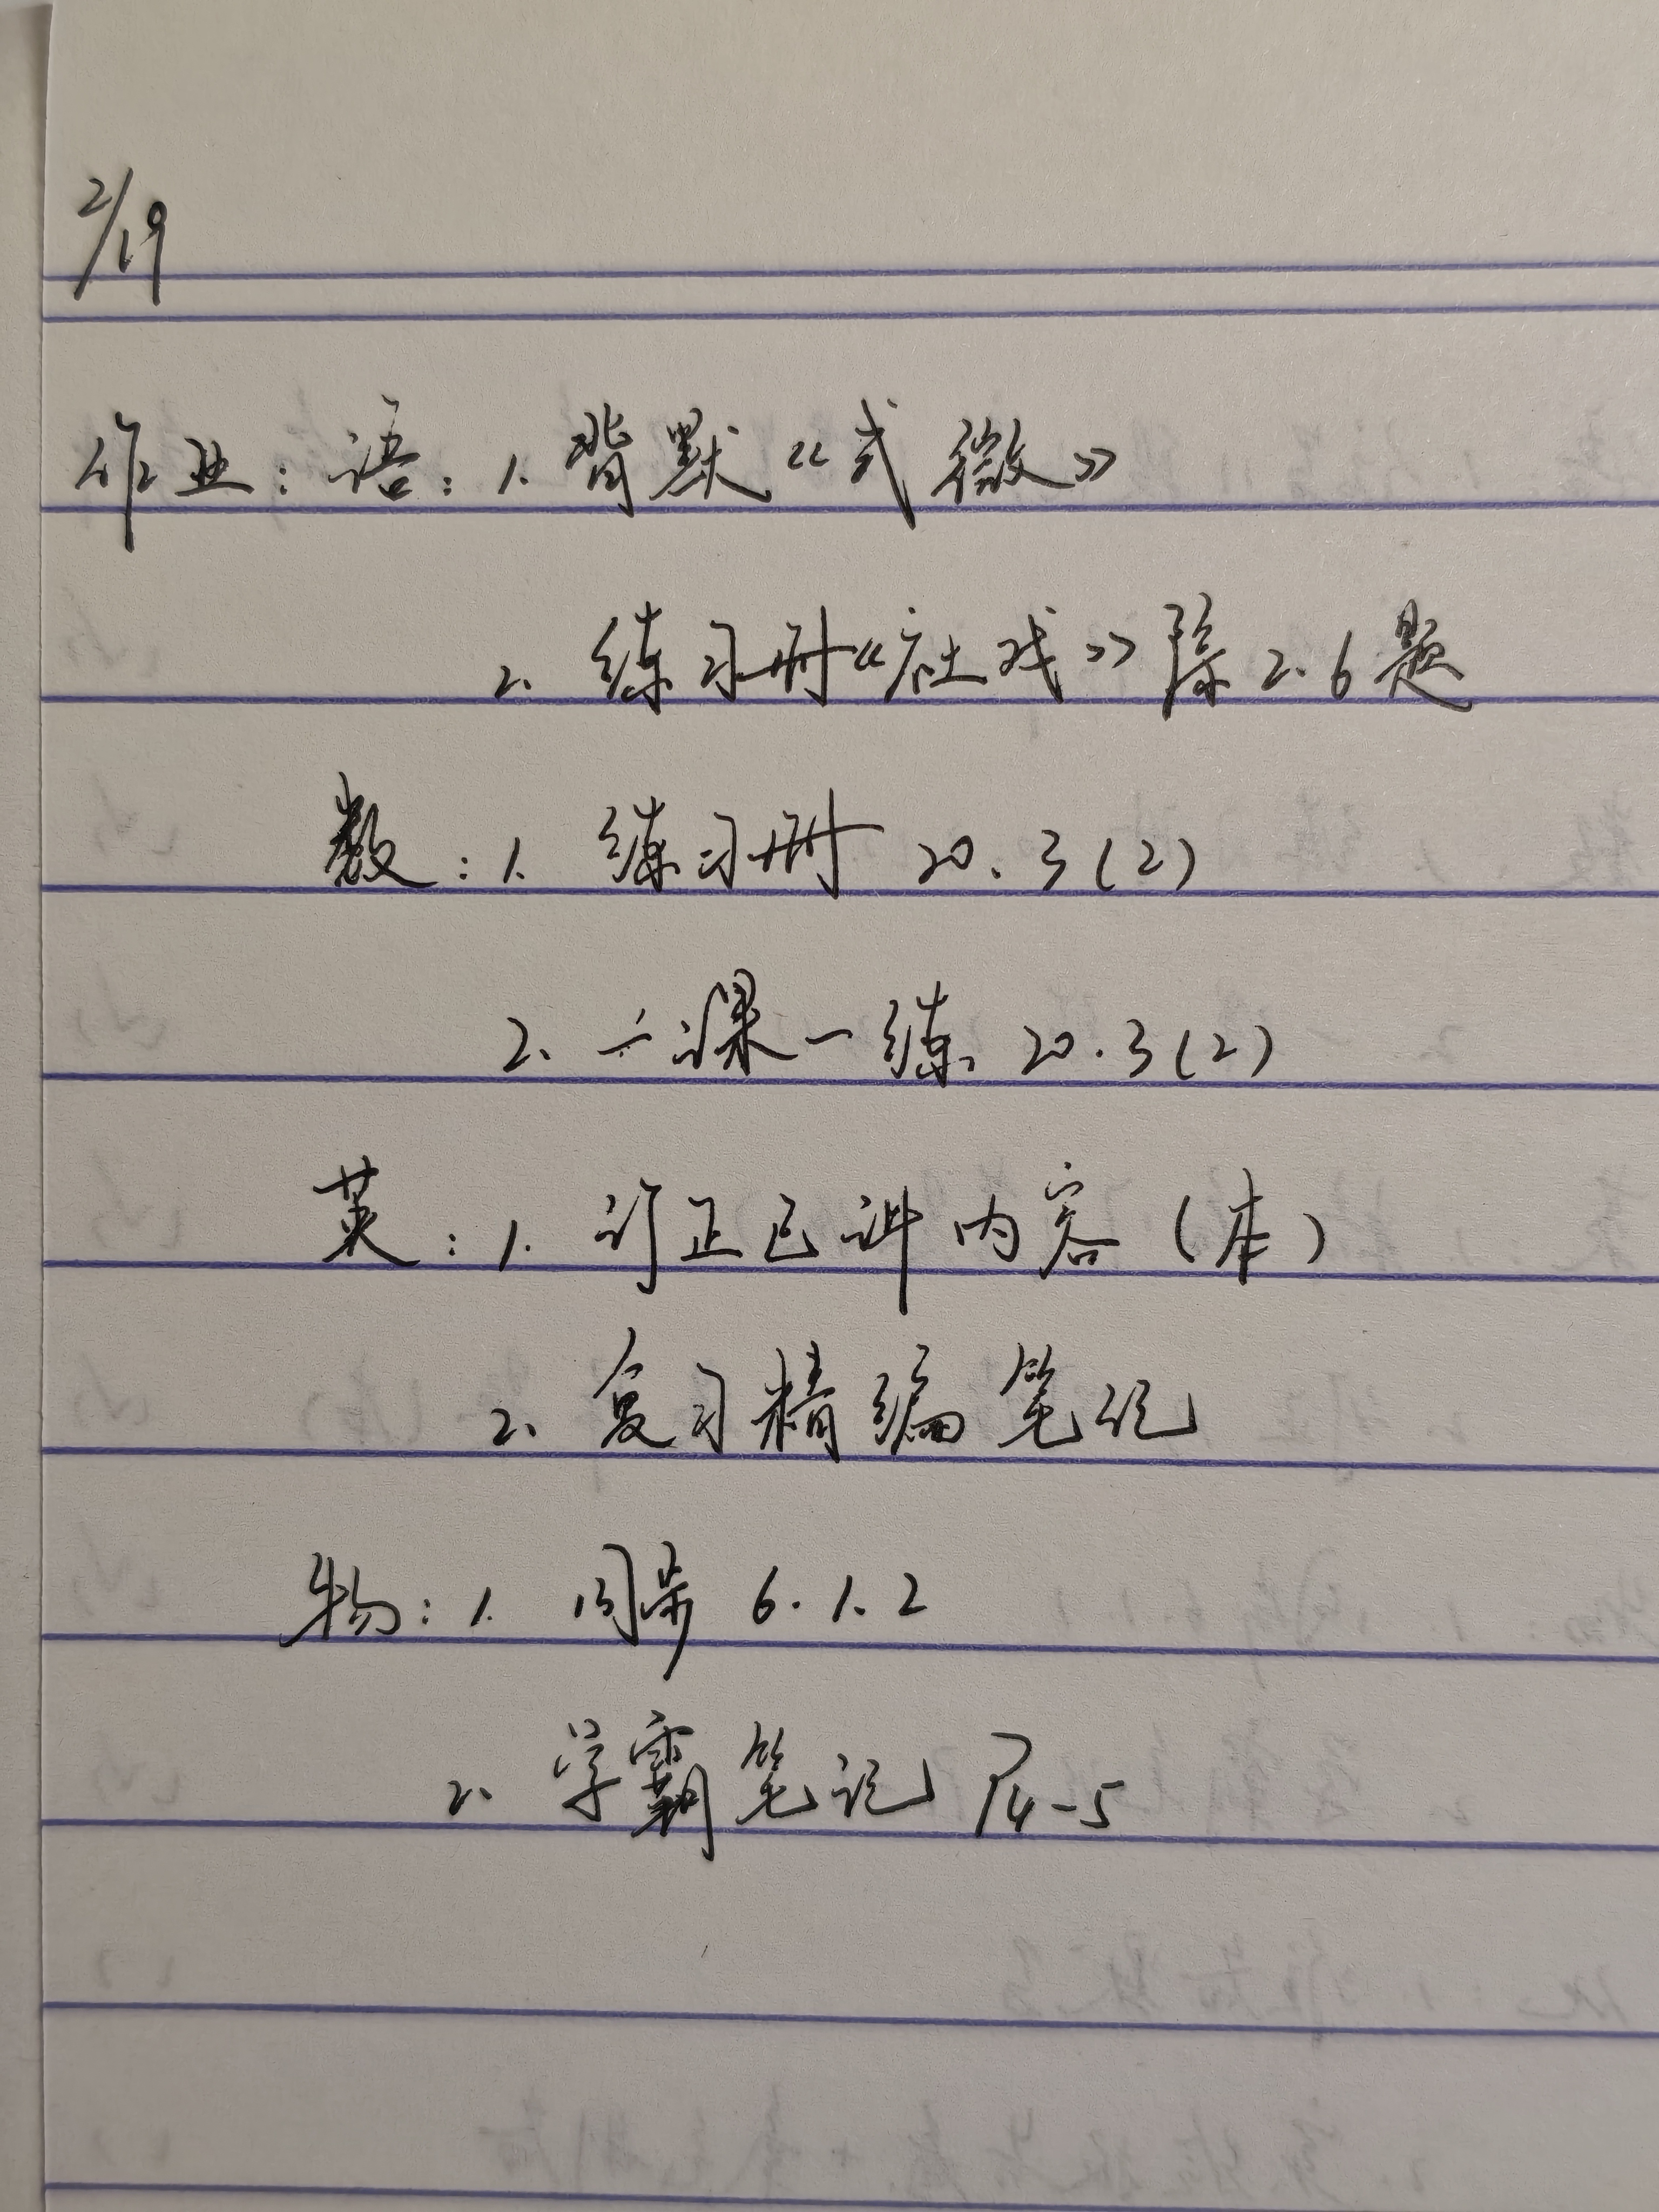 2/19
作业：语：1. 背默《式微》
2. 练习册《社戏》除2.6题
数：1. 练习册 20.3(2)
2. 一课一练 20.3(2)
英：1. 订正已讲内容（本）
2. 复习精编笔记
物：1. 同步 6.1.2
2. 学霸笔记 P4-5